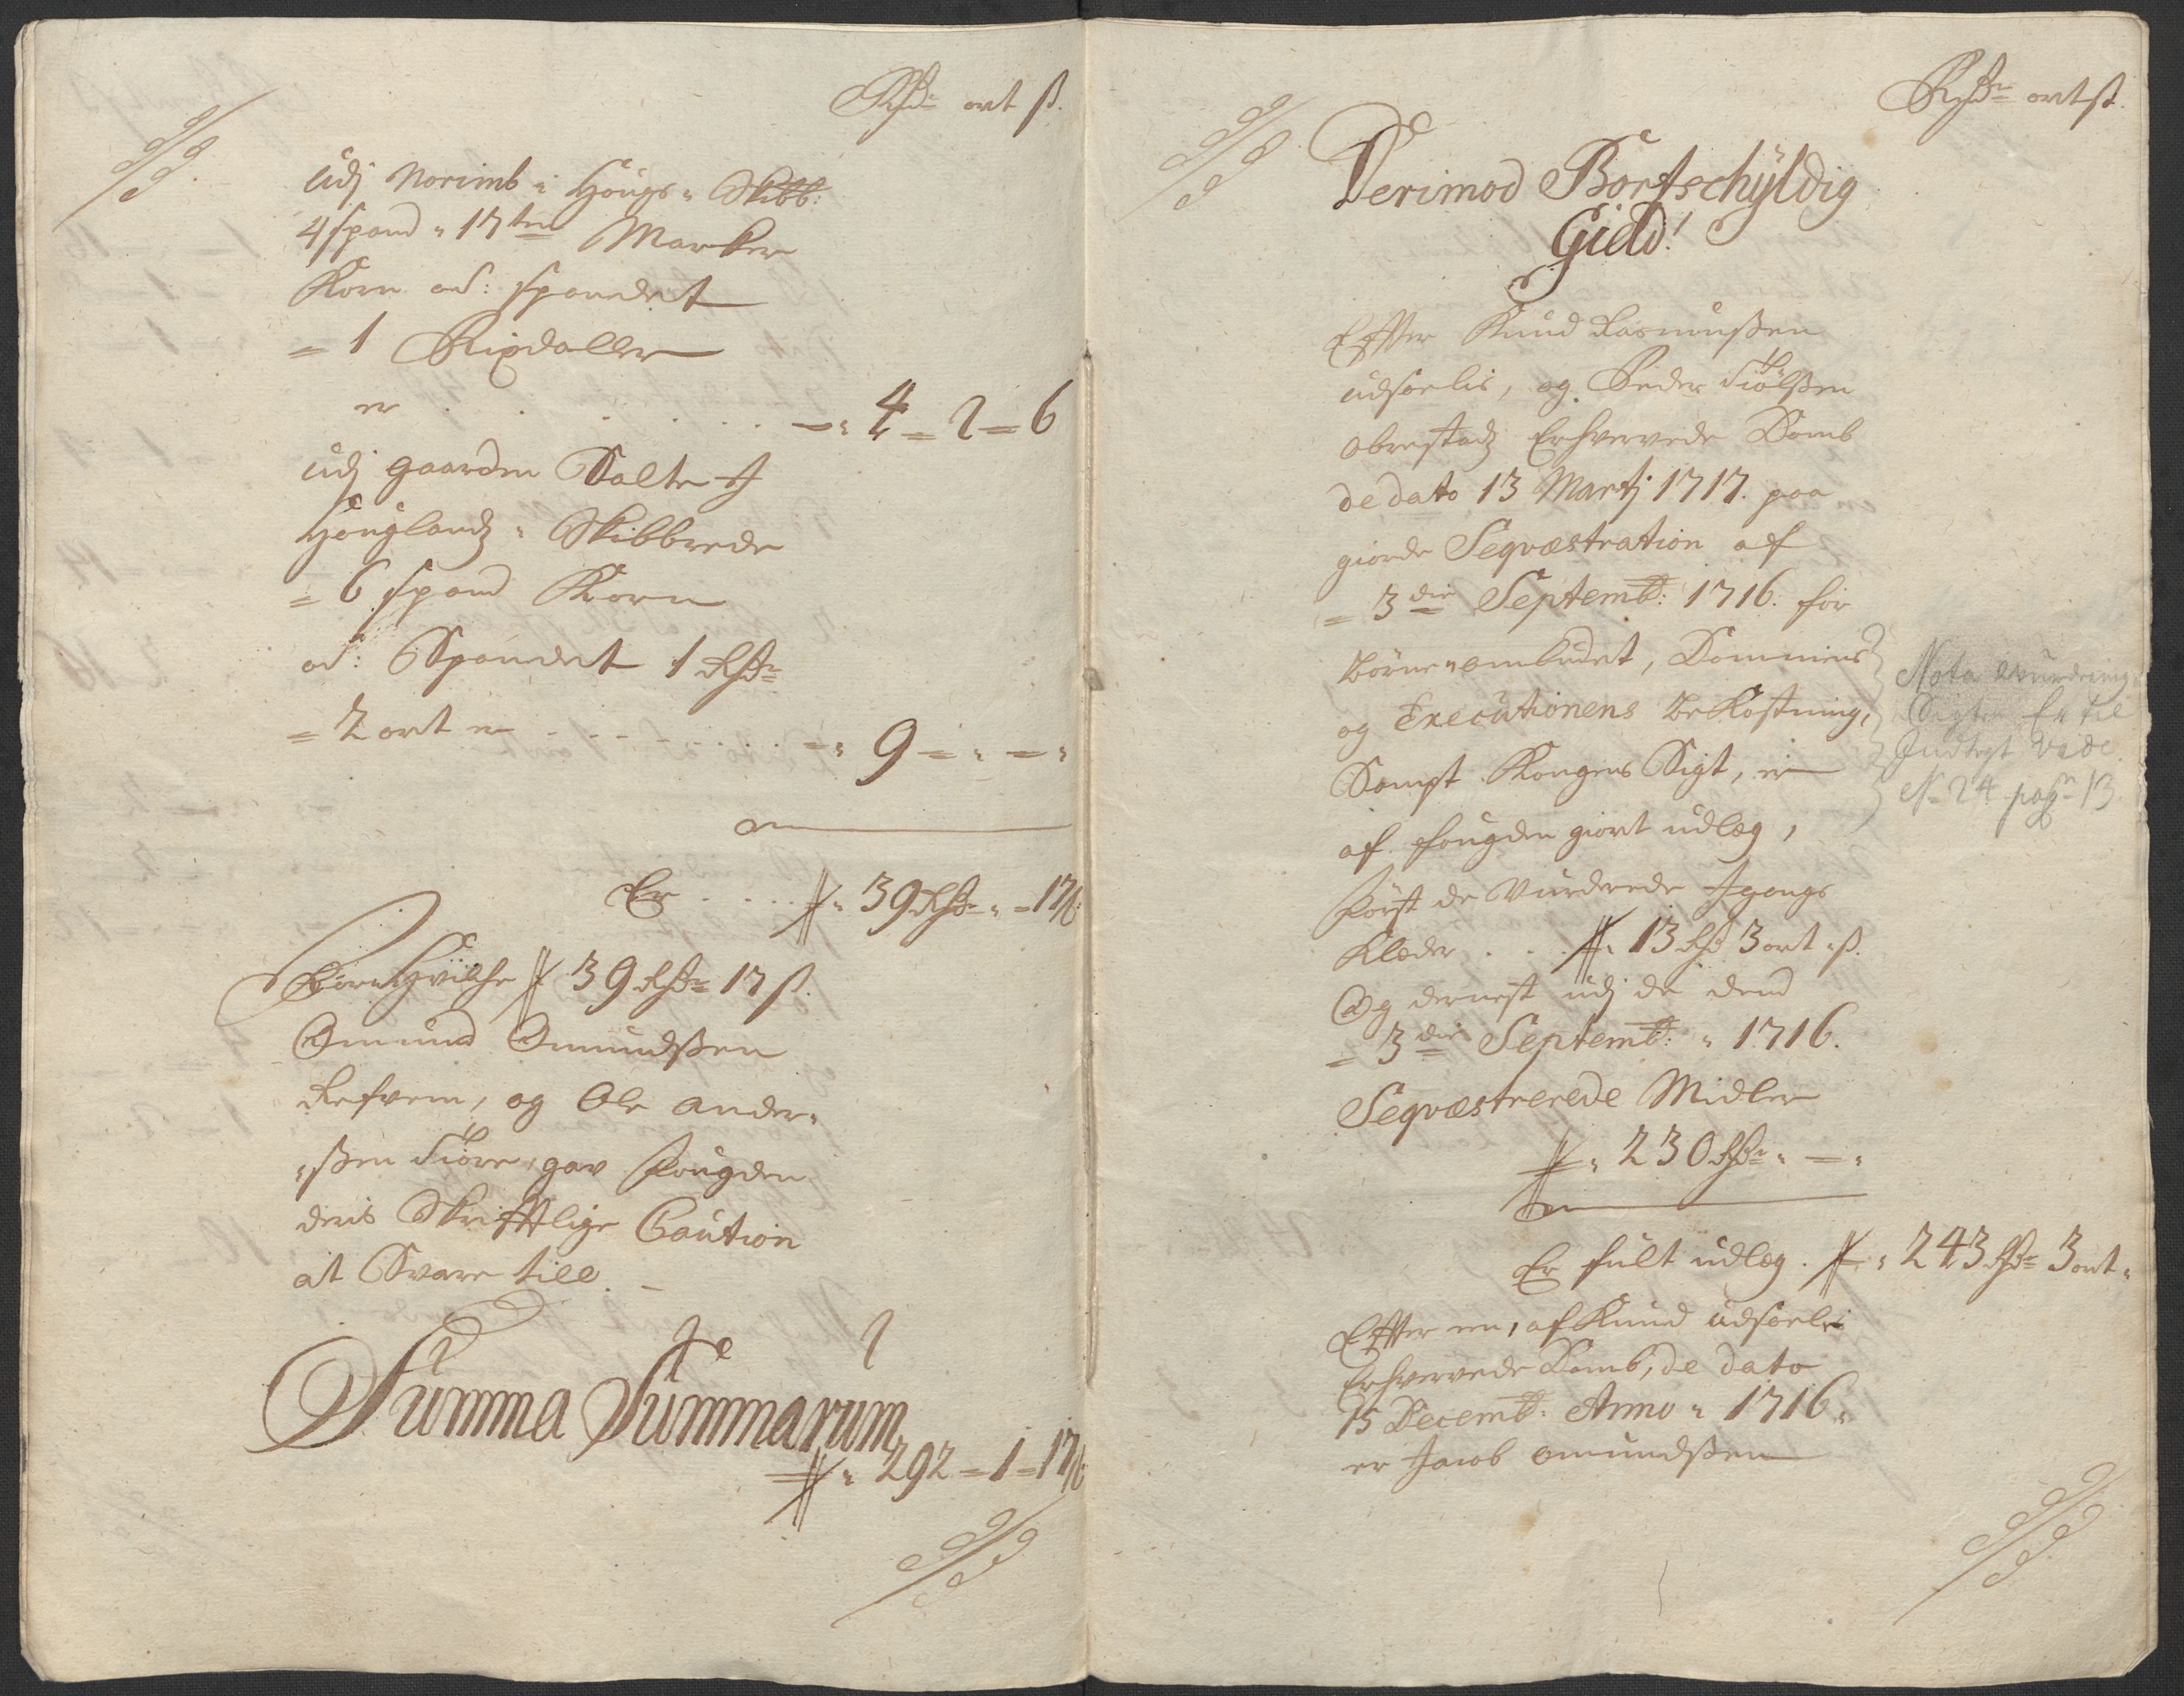 Rdr ort ß.
Udj Norimb i Hougs Skibb:
4 spand 17 ten Marker
Korn ad: spandet
= 1 Rixdaller
er . . . . . . 4 = 2 = 6
udj gaarden Salte J
Houglandz Skibbrede
= 6 spand Korn
ad: Spandet 1 Rdr
= 2 ort er . . . . . 9 = - = -
Er . . . . 39 Rdr - = 17 ß.
For Hvilche 39 Rdr 17 ß.
Omund Omundßen
Refvem, og Ole Ander-
-ßen Tiøre, gav Fougden
deris Skrifftlige Caution
at Svare till.
Summa Summarum
292 = 1 = 17 ß
Rdr ort ß.
Derimod Bortschyldig
Gield!
Effter Knud Rasmußen
udsoelis, og Peder Tiølßen
Obrestadz Erhvervede Domb
de dato 13 Martj 1717. paa
giorde Seqvæstration af
= 3 die Septembr: 1716. for
Børne-ombudet, Dommens
og Executionens Bekostning,
Sampt Kongens Sigt, er
af fougden giort udlæg,
Først de Vurderede Jgangs
Klæder . . . 13 Rd 3 ort - ß.
Og dernest udj de dend
= 3 die Septembr: 1716.
Seqvæstrerede Midler
230 Rdr - -
Er fult udlæg . 243 Rdr 3 ort -
Effter en, af Knud udsoelis
Erhvervede Domb, de dato
15 Decembr: Anno 1716.
er Jacob omundßen
Nota Vurderings
Sigtn Er til
Indtegt Vide
No 24 pag 13